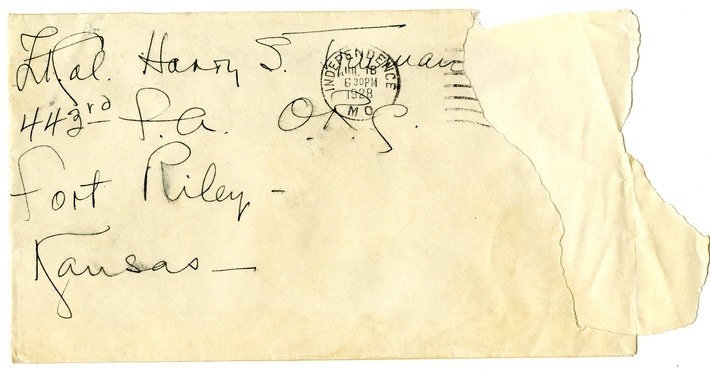 Lt Col. Harry S. Truman
443rd F.A. O.R.C.
Fort Riley -
Kansas —
INDEPENDENCE
JUL 18
6 30 PM
1928
MO